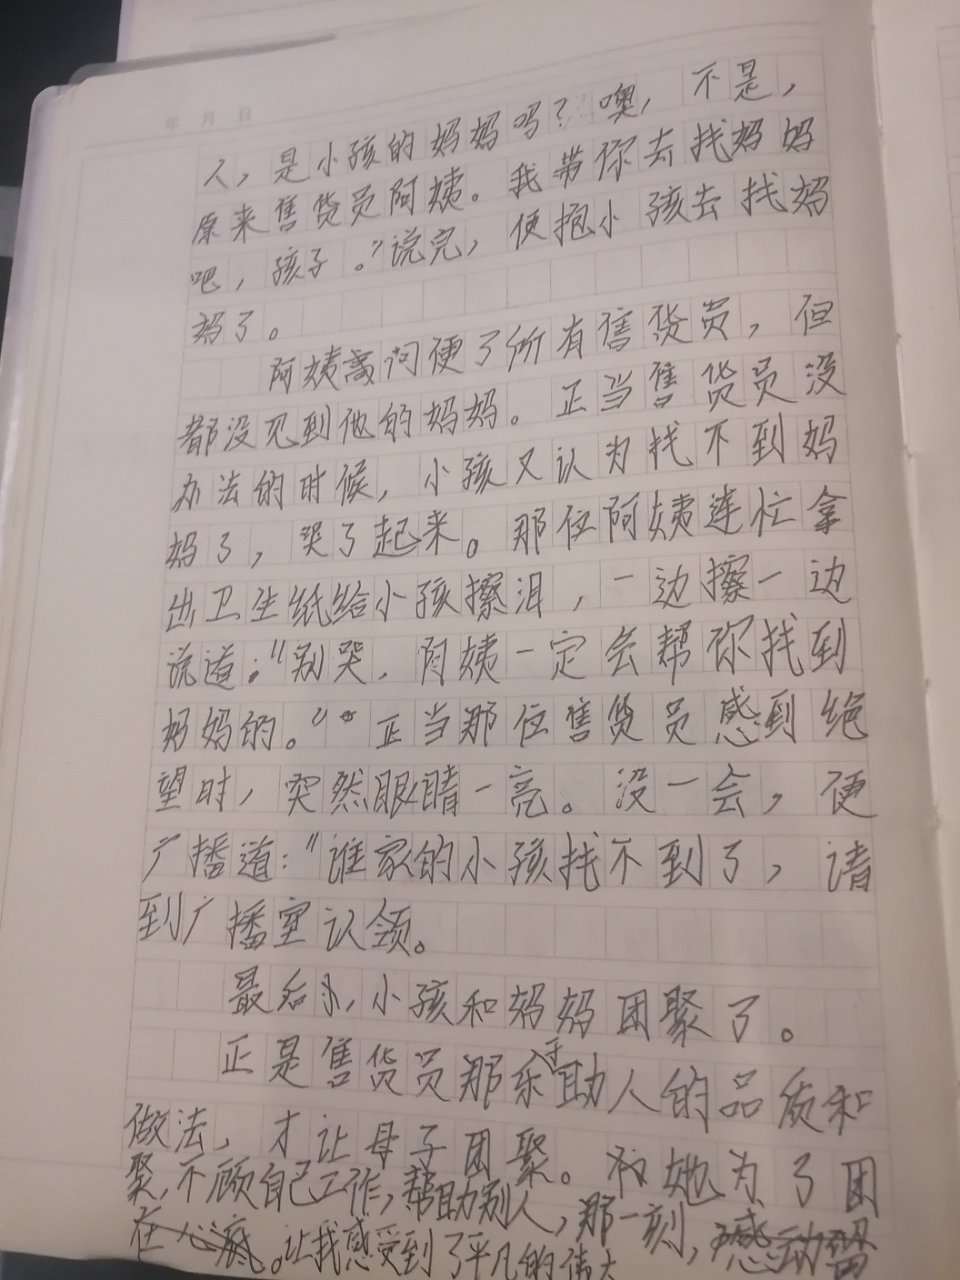 年 月 日
人，是小孩的妈妈吗？噢，不是，
原来售货员阿姨。我带你去找妈妈
吧，孩子。”说完，便抱小孩去找妈
妈了。
阿姨问便了所有售货员，但
都没见到他的妈妈。正当售货员没
办法的时候，小孩又认为找不到妈
妈了，哭了起来。那位阿姨连忙拿
出卫生纸给小孩擦泪，一边擦一边
说道：“别哭，阿姨一定会帮你找到
妈妈的。”正当那位售货员感到绝
望时，突然眼睛一亮。没一会，便
广播道：“谁家的小孩找不到了，请
到广播室认领。
最后，小孩和妈妈团聚了。
正是售货员那乐于助人的品质和
做法，才让母子团聚。她为了团
聚，不顾自己工作，帮助别人，那一刻，
让我感受到了平凡的伟大